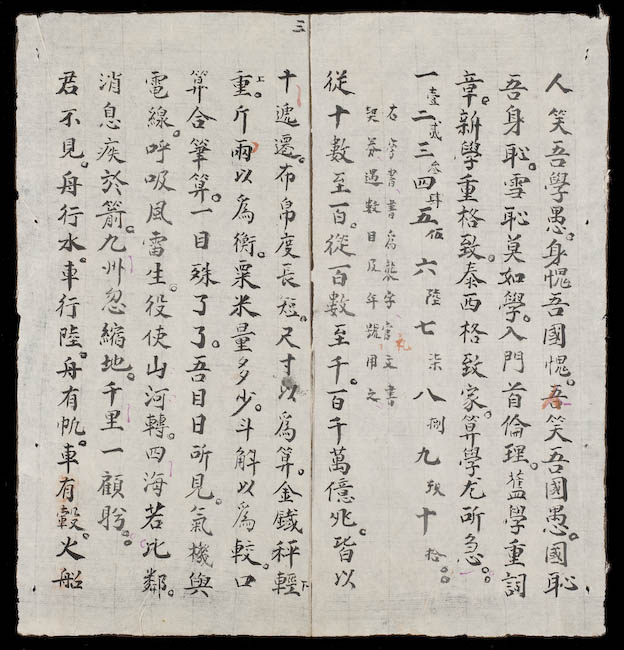 三
人笑吾學愚。身愧吾國愧。吾笑吾國愚。國恥
吾身恥。雪恥莫如學。入門首倫理。舊學重詞
章。新學重格致。泰西格致家。算學尤所急。
一壹二貳三叁四肆五伍六陸七柒八捌九玖十拾。
右字書為襲字官文書
契券遇數目及年號用之
從十數至百。從百數至千。百千萬億兆。皆以
十遞遷。布帛度長短。尺寸以為算。金鐵秤輕
重。斤兩以為衡。粟米量多少。斗斛以為較。口
算合筆算。一目殊了了。吾目日所見。氣機與
電線。呼吸風雷生。役使山河轉。四海若比鄰。
消息疾於箭。九州忽縮地。千里一顧盼。
君不見。舟行水。車行陸。舟有帆。車有轂。火船